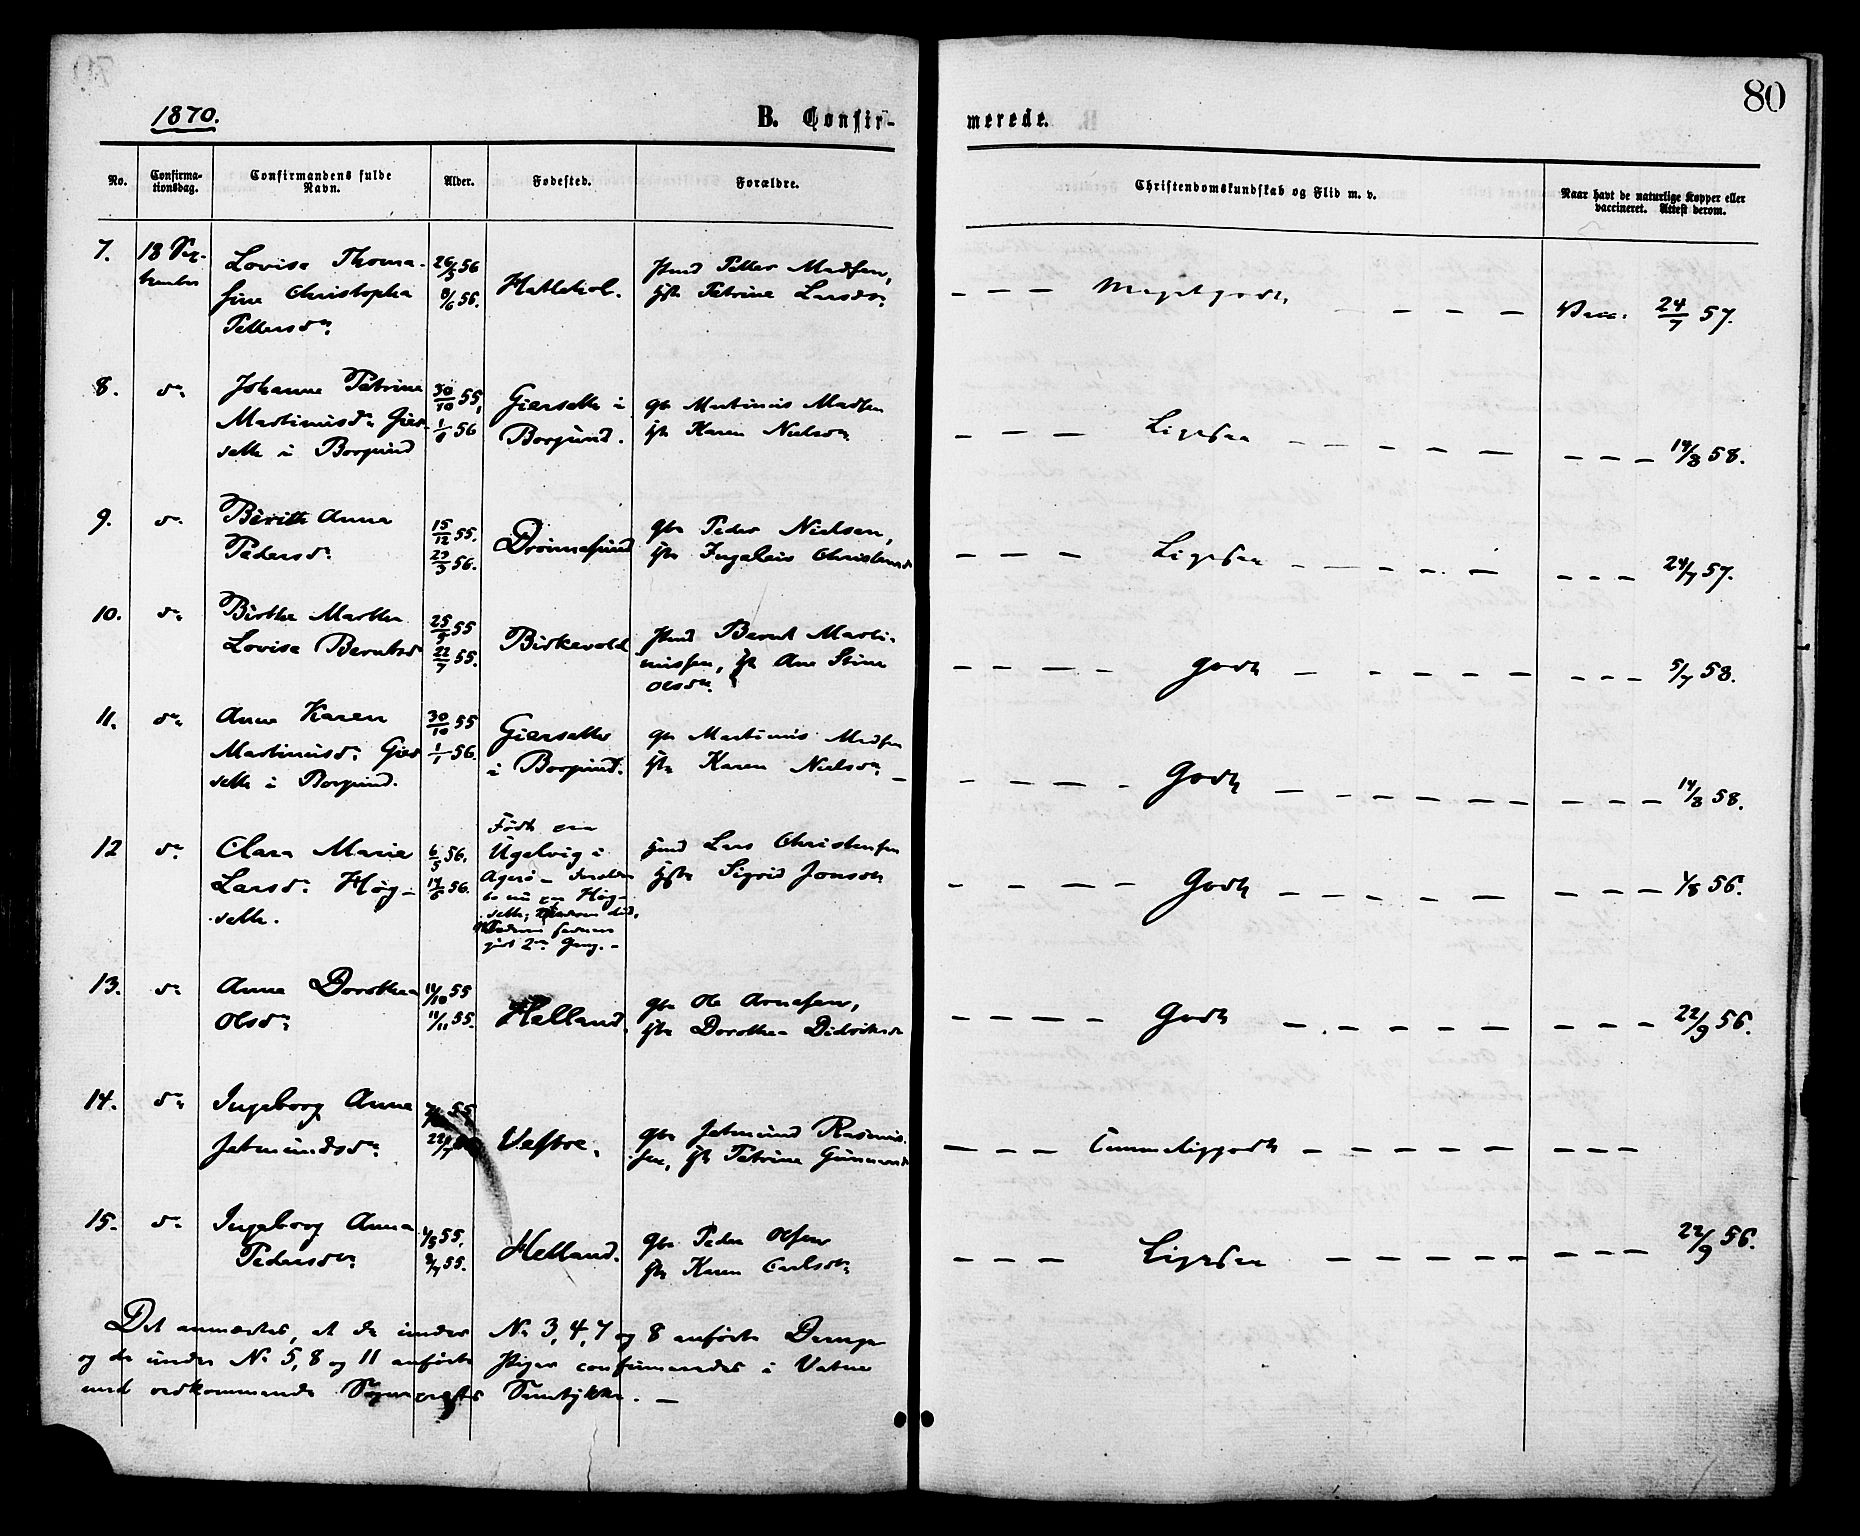 1870.
B. Confir-
merede.
80
No.
Confirma-
tionsdag.
Confirmandens fulde
Navn.
Alder.
Fødested.
Forældre.
Christendomskundskab og Flid m. v.
Naar havt de naturlige Kopper eller
vaccineret. Attest derom.
7. 18 Sep-
tember
Lovise Thoma-
sine Christopha
Pettersdr
26/5 56
8/6 56.
Hatlehol.
Petter Madsen,
Petrine Larsdr
Megetgodt
Vacc. 24/7 57.
8. do
Johanne Petrine
Martinusdr Gjer-
sette i Borgund
30/10 55,
1/1 56
Giersette i
Borgund.
Gbr Martinus Madsen
Karen Nielsdr
Ligesaa
14/8 58.
9. do
Berith Anna
Pedersdr
15/12 55.
23/3 56.
Drønnesund
Gbr Peder Nielsen,
Ingeleiv Christensdr
Ligesaa
24/7 57.
10. do
Birthe Marthe
Lovise Berntsdr
25/5 55
22/7 55.
Birkevold
Bernt Marti-
nussen, Ane Stine
Olsdr
Godt
5/7 58.
11. do
Anne Karen
Martinusdr Gjer
sette i Borgund.
30/10 55
1/1 56.
Giersette
i Borgund.
Gbr Martinus Madsen
Karen Nielsdr
Godt
14/8 58.
12 do
Clara Marie
Larsdr Høg-
sette.
6/5 56.
14/6 56.
Født paa
Ugelvig i
Agerø
bo nu paa Høg-
sette;
2den Gang.
Lars Christensen
Sigrid Jonsdr
Godt
1/8 56.
13. do
Anne Dorothea
Olsdr
14/10 55
11/11 55.
Helland.
Gbr Ole Arnesen,
Dorothea Didriksdr
Godt
22/9 56.
14. do
Ingeborg Anne
Jetmundsdr
55
Vestre.
Gbr Jetmund Rasmus-
sen, Petrine Gunnersdr
Temmeliggodt
15. do
Ingeborg Anna
Pedersdr
1/5 55.
8/7 55.
Helland.
Gbr Peder Olsen
Karen Carlsdr
Ligesaa
22/9 56.
Det anmærkes, at de under No 3, 4, 7 og 8 anførte Drenge
og de under No 5, 8 og 11 anførte Piger confirmeredes i Vatne
med vedkommende Sogneprests Samtykke.